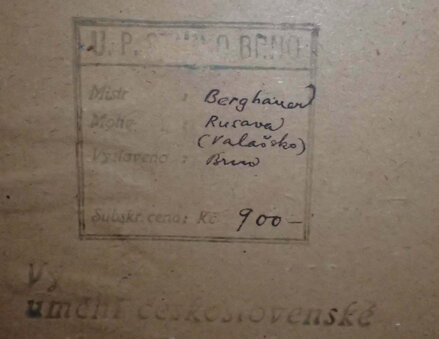 U. P. BRNO
Mistr : Berghauer
Motiv : Rusava
(Valašsko)
Vysláveno : Brno
Subskr. cena: Kč 900-
umění československé